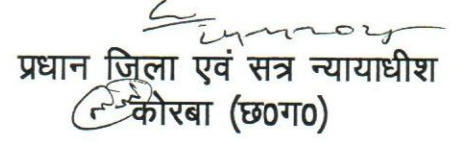 प्रधान जिला एवं सत्र न्यायाधीश
कोरबा (छ0ग0)